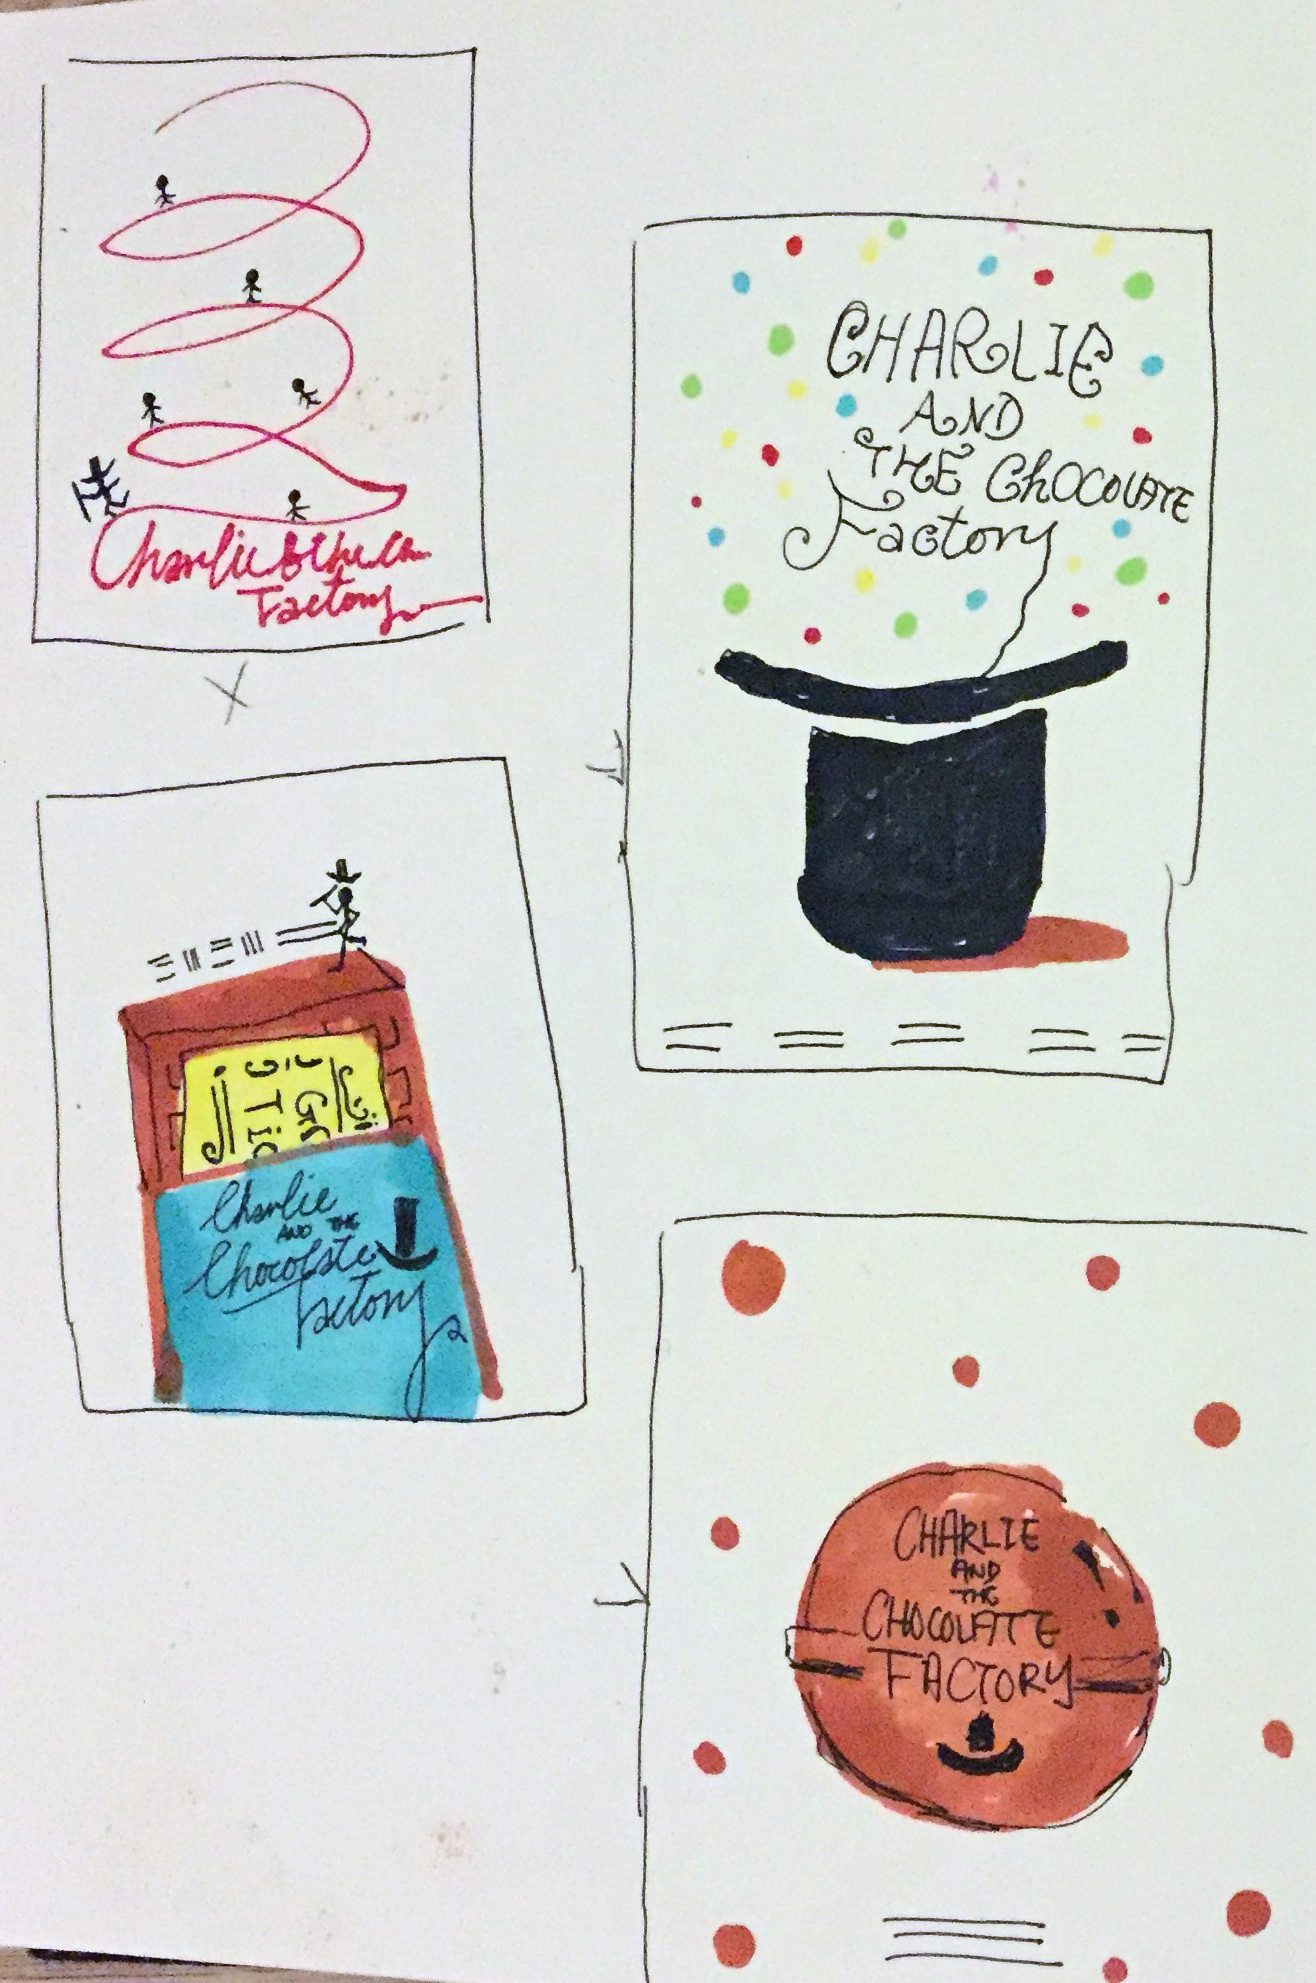 Charlie & the
Factory
CHARLIE
AND
THE ChOCOLATE
Factory
Ti
GO
Charlie
AND THE
Chocolate
factory
CHARLIE
AND
THE
CHOCOLATE
FACTORY